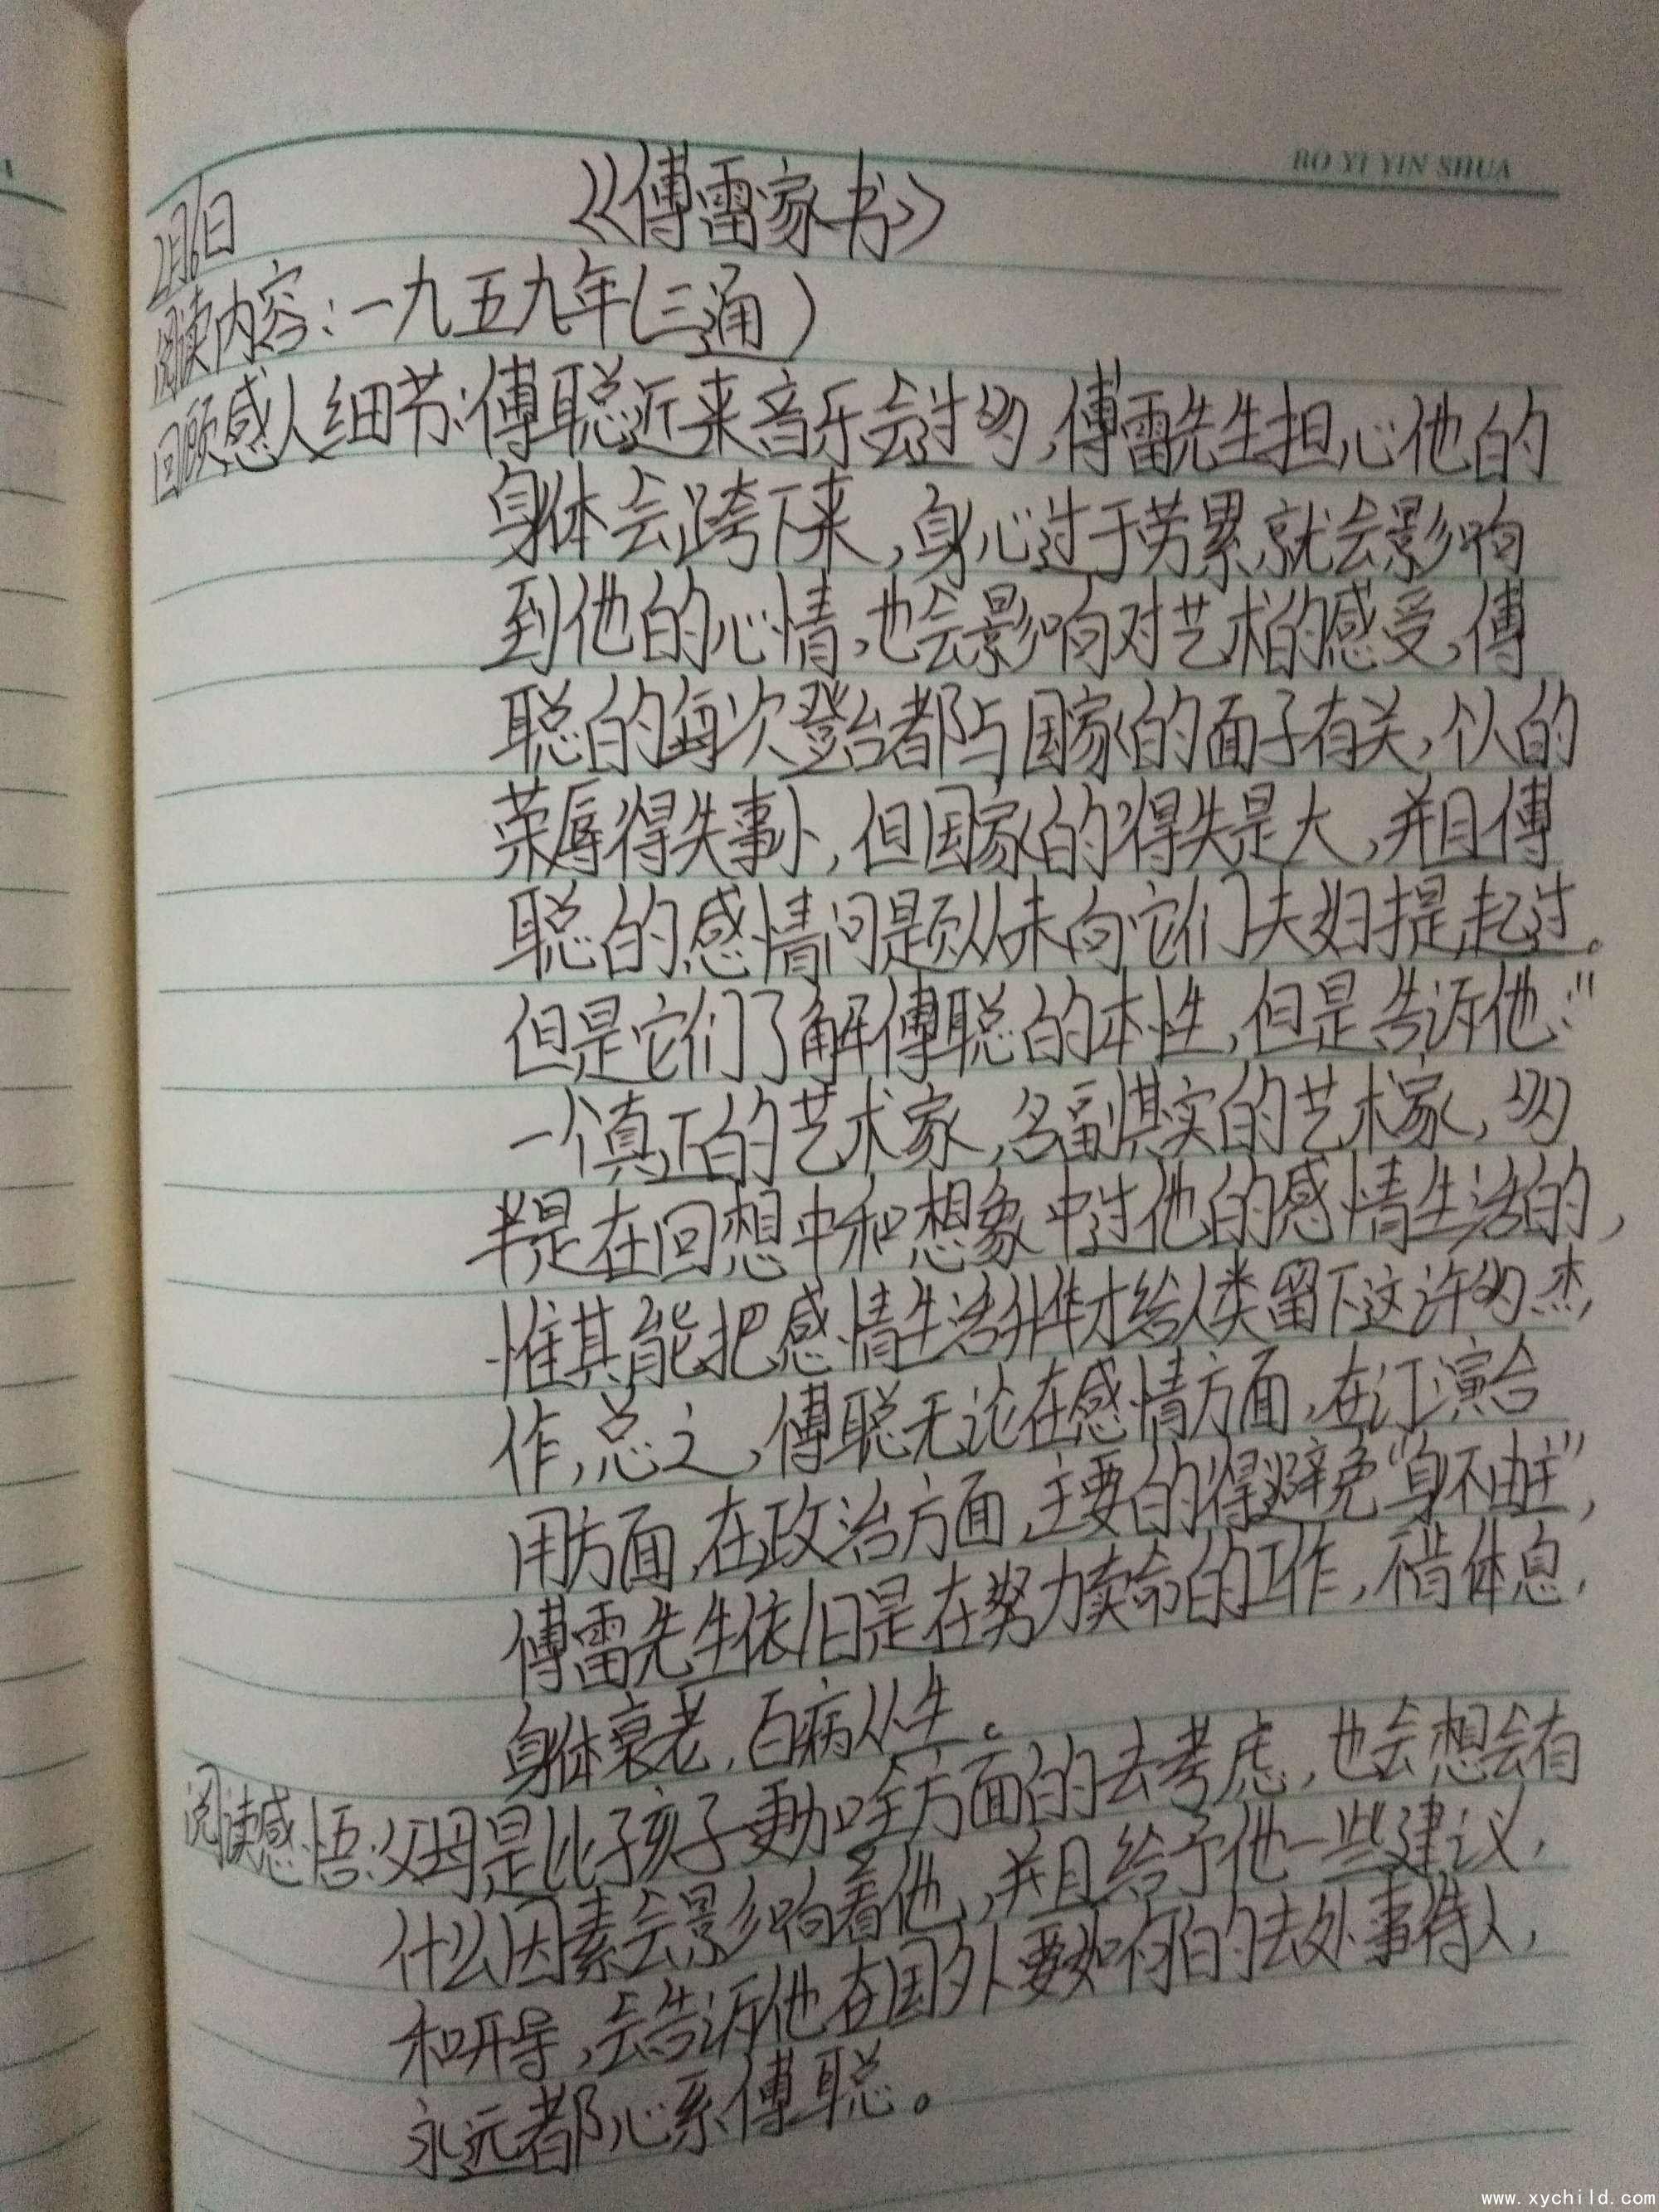 BO YI YIN SHUA
《傅雷家书》
2月6日
阅读内容：一九五九年（三通）
回顾感人细节：傅聪近来音乐会过多，傅雷先生担心他的
身体会跨下来，身心过于劳累，就会影响
到他的心情，也会影响对艺术的感受，傅
聪的每次登台都与国家的面子有关，个人的
荣辱得失事小，但国家的得失是大，并且傅
聪的感情问题从未向它们夫妇提起过。
但是它们了解傅聪的本性，但是告诉他："
一个真正的艺术家，名副其实的艺术家，多
半是在回想中和想象中过他的感情生活的，
惟其能把感情生活升华才给人类留下这许多杰
作，总之，傅聪无论在感情方面，在订演台
用方面，在政治方面，主要的得避免"身不由主"，
傅雷先生依旧是在努力卖命的工作，不惜休息，
身体衰老，百病从生。
阅读感悟：父母是比孩子更加全方面的去考虑，也会想会有
什么因素会影响着他，并且给予他一些建议，
和开导，会告诉他在国外要如何的去处事待人，
永远都心系傅聪。
www.xychild.com